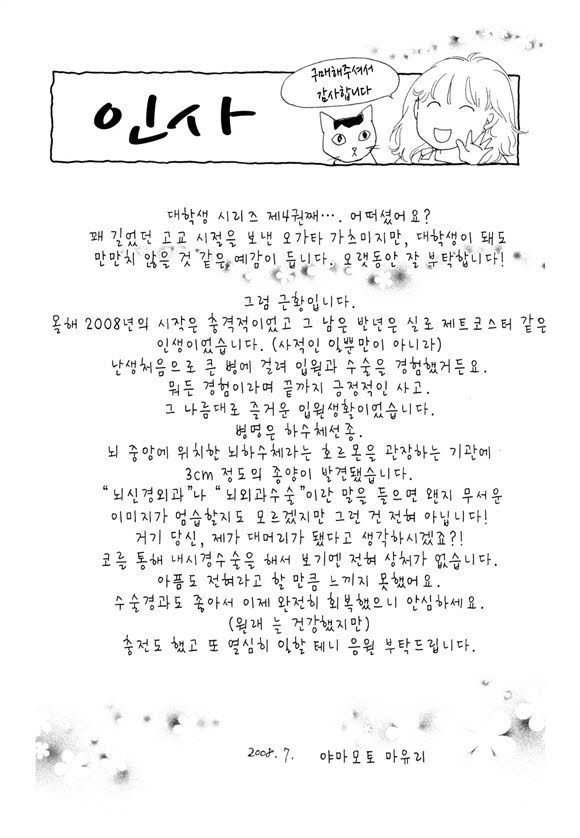 인사
구매해주셔서
감사합니다
대학생 시리즈 제4권째…. 어떠셨어요?
꽤 길었던 고교 시절을 보낸 오가타 가츠미지만, 대학생이 돼도
만만치 않을 것 같은 예감이 듭니다. 오랫동안 잘 부탁합니다!
그럼 근황입니다.
올해 2008년의 시작은 충격적이었고 그 남은 반년은 실로 제트코스터 같은
인생이었습니다. (사적인 일뿐만이 아니라)
난생처음으로 큰 병에 걸려 입원과 수술을 경험했거든요.
뭐든 경험이라며 끝까지 긍정적인 사고.
그 나름대로 즐거운 입원생활이었습니다.
병명은 하수체선종.
뇌 중앙에 위치한 뇌하수체라는 호르몬을 관장하는 기관에
3cm 정도의 종양이 발견됐습니다.
“뇌신경외과”나 “뇌외과수술”이란 말을 들으면 왠지 무서운
이미지가 엄습할지도 모르겠지만 그런 건 전혀 아닙니다!
거기 당신, 제가 대머리가 됐다고 생각하시겠죠?!
코를 통해 내시경수술을 해서 보기엔 전혀 상처가 없습니다.
아픔도 전혀라고 할 만큼 느끼지 못했어요.
수술경과도 좋아서 이제 완전히 회복했으니 안심하세요.
(원래 늘 건강했지만)
충전도 했고 또 열심히 일할 테니 응원 부탁드립니다.
2008. 7. 야마모토 마유리